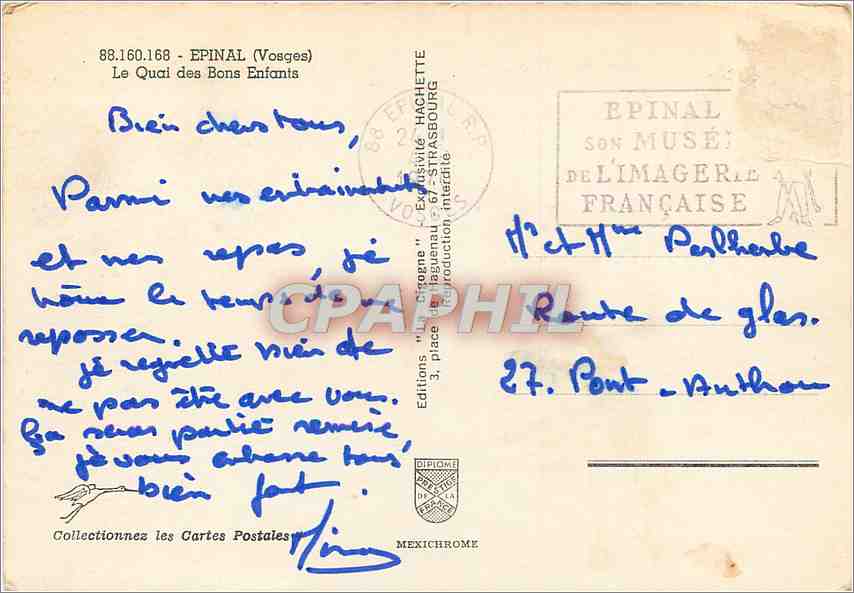 88.160.168 - EPINAL (Vosges)
Le Quai des Bons Enfants
Bien chers tous,
Parmi nos entrainements
et nos repas, je
le temps de me
reposser.
je regrette bien de
ne pas être avec vous.
Ça seras partie remise,
je vous embrasse tous
bien fort.
Collectionnez les Cartes Postales
Editions "La Cigogne" - Exclusivité HACHETTE
3, place de Haguenau - 67 - STRASBOURG
Reproduction interdite
DIPLOME
PRESTIGE
DE LA
FRANCE
MEXICHROME
88 EPINAL R.P.
VOSGES
EPINAL
SON MUSÉE
DE L'IMAGERIE
FRANÇAISE
Mr et Mme
Route de glos.
27. Pont-Authou
CPAPHIL